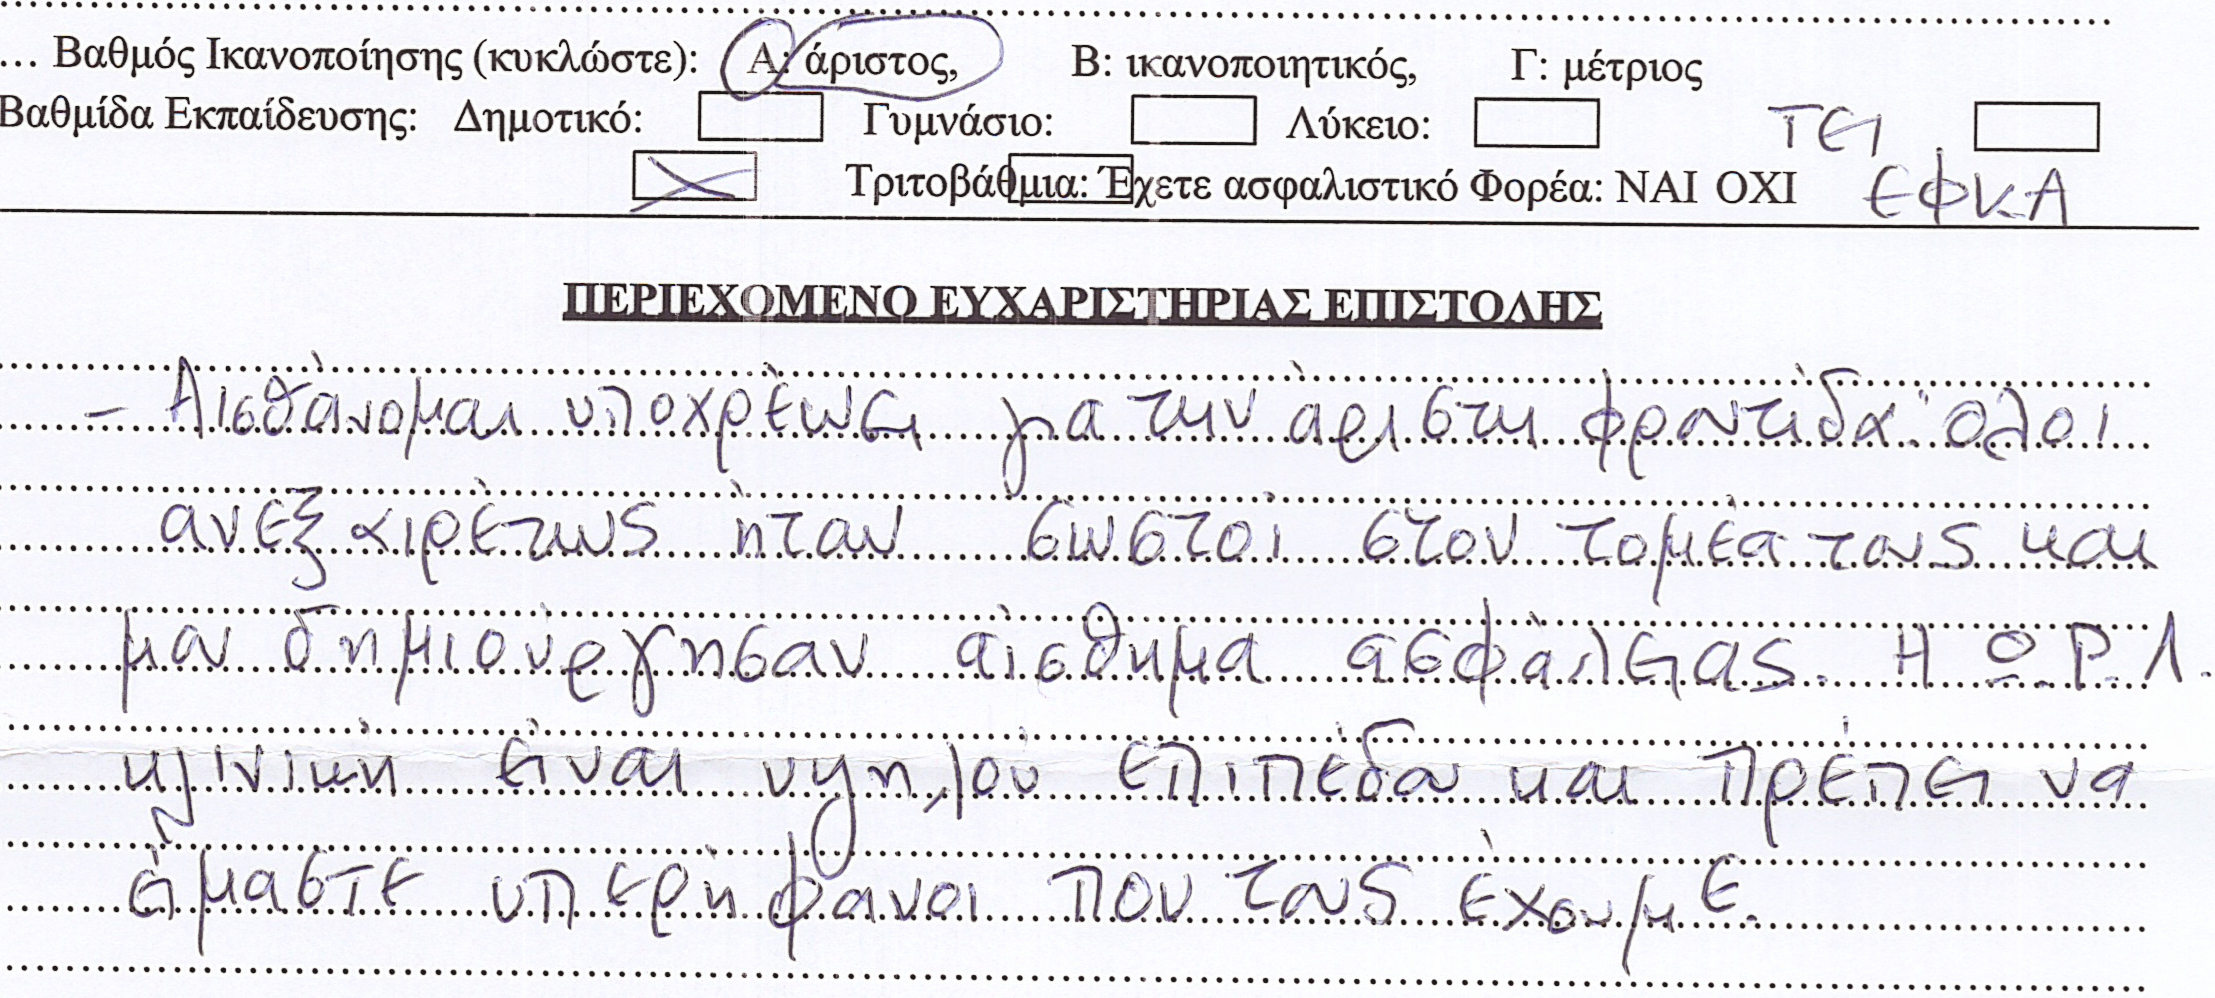 ... Βαθμός Ικανοποίησης (κυκλώστε): Α: άριστος, Β: ικανοποιητικός, Γ: μέτριος
Βαθμίδα Εκπαίδευσης: Δημοτικό: Γυμνάσιο: Λύκειο: ΤΕΙ
Τριτοβάθμια: Έχετε ασφαλιστικό Φορέα: ΝΑΙ ΟΧΙ ΕΦΚΑ
ΠΕΡΙΕΧΟΜΕΝΟ ΕΥΧΑΡΙΣΤΗΡΙΑΣ ΕΠΙΣΤΟΛΗΣ
- Αισθάνομαι υποχρέωση για την άριστη φροντίδα· όλοι
ανεξαιρέτως ήταν σωστοί στον τομέα τους και
μου δημιούργησαν αίσθημα ασφάλειας. Η Ω.Ρ.Λ.
κλινική είναι υψηλού επιπέδου και πρέπει να
είμαστε υπερήφανοι που τους έχουμε.